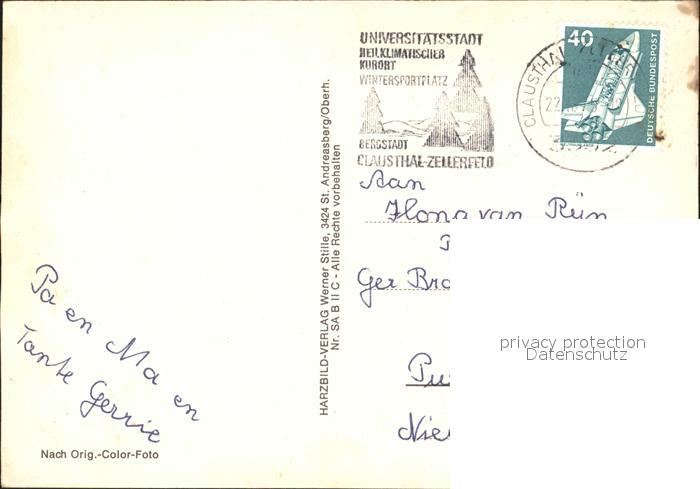 UNIVERSITÄTSSTADT
HEILKLIMATISCHER
KURORT
WINTERSPORTPLATZ
BERGSTADT
CLAUSTHAL-ZELLERFELD
40
DEUTSCHE BUNDESPOST
CLAUSTHAL
22
HARZBILD-VERLAG Werner Stille, 3424 St. Andreasberg/Oberh.
Nr. SA B II C - Alle Rechte vorbehalten
Aan
Ilona van Rijn
Ger Bro
Pu
Nie
privacy protection
Datenschutz
Pa en Ma en
Tante Gerrie
Nach Orig.-Color-Foto